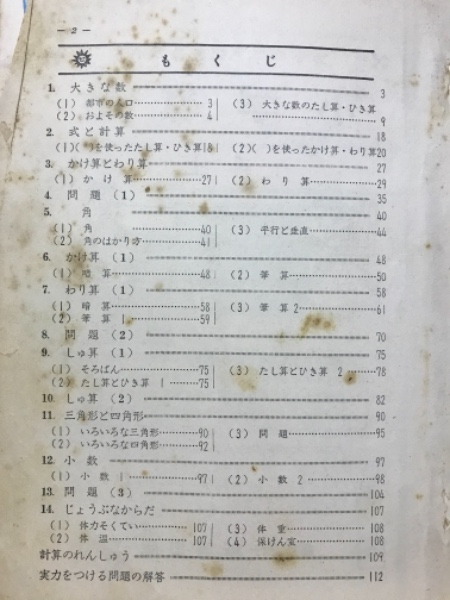 — 2 —
もくじ
1. 大きな数 3
(1) 都市の人口 3 (3) 大きな数のたし算・ひき算
(2) およその数 4 9
2. 式と計算 18
(1)( )を使ったたし算・ひき算18 (2)( )を使ったかけ算・わり算20
3. かけ算とわり算 27
(1) かけ算 27 (2) わり算 29
4. 問題 (1) 35
5. 角 40
(1) 角 40 (3) 平行と垂直 44
(2) 角のはかり方 41
6. かけ算 (1) 48
(1) 暗算 48 (2) 筆算 50
7. わり算 (1) 58
(1) 暗算 58 (3) 筆算 2 61
(2) 筆算 1 59
8. 問題 (2) 70
9. しゅ算 (1) 75
(1) そろばん 75 (3) たし算とひき算 2 78
(2) たし算とひき算 1 75
10. しゅ算 (2) 82
11. 三角形と四角形 90
(1) いろいろな三角形 90 (3) 問題 95
(2) いろいろな四角形 92
12. 小数 97
(1) 小数 1 97 (2) 小数 2 98
13. 問題 (3) 104
14. じょうぶなからだ 107
(1) 体力そくてい 107 (3) 体重 108
(2) 体温 107 (4) 保けん室 108
計算のれんしゅう 109
実力をつける問題の解答 112